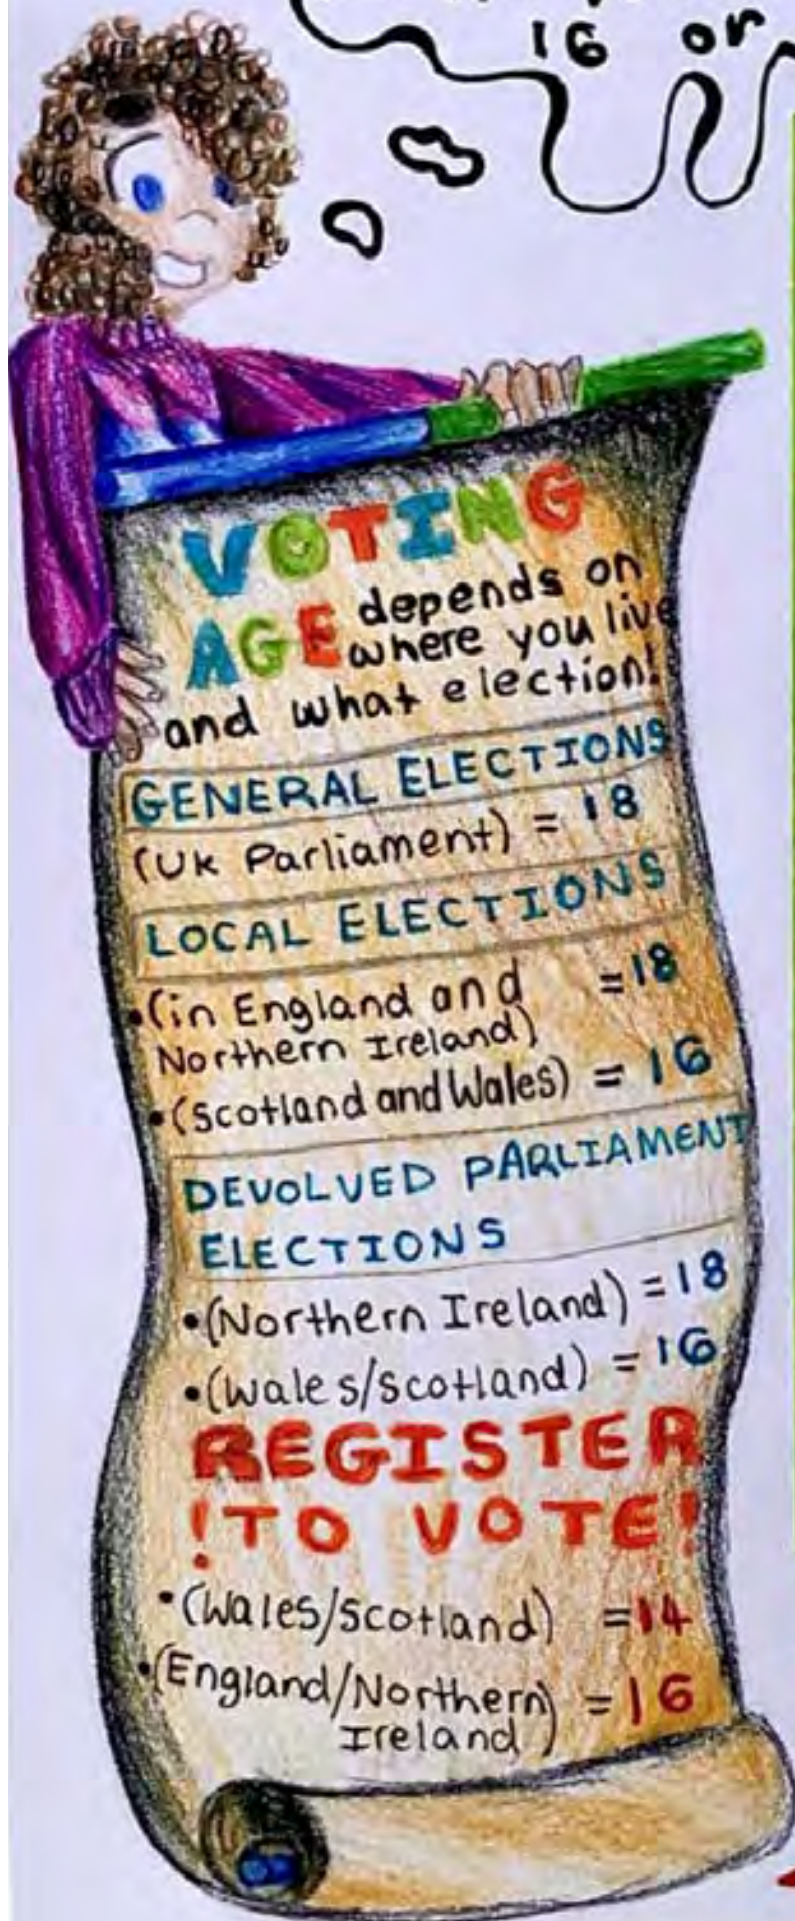 16 or
VOTING
AGE depends on
where you live
and what election!
GENERAL ELECTIONS
(UK Parliament) = 18
LOCAL ELECTIONS
•(in England and = 18
Northern Ireland)
•(Scotland and Wales) = 16
DEVOLVED PARLIAMENT
ELECTIONS
•(Northern Ireland) = 18
•(Wales/Scotland) = 16
REGISTER
!TO VOTE!
•(Wales/Scotland) = 14
•(England/Northern = 16
Ireland)